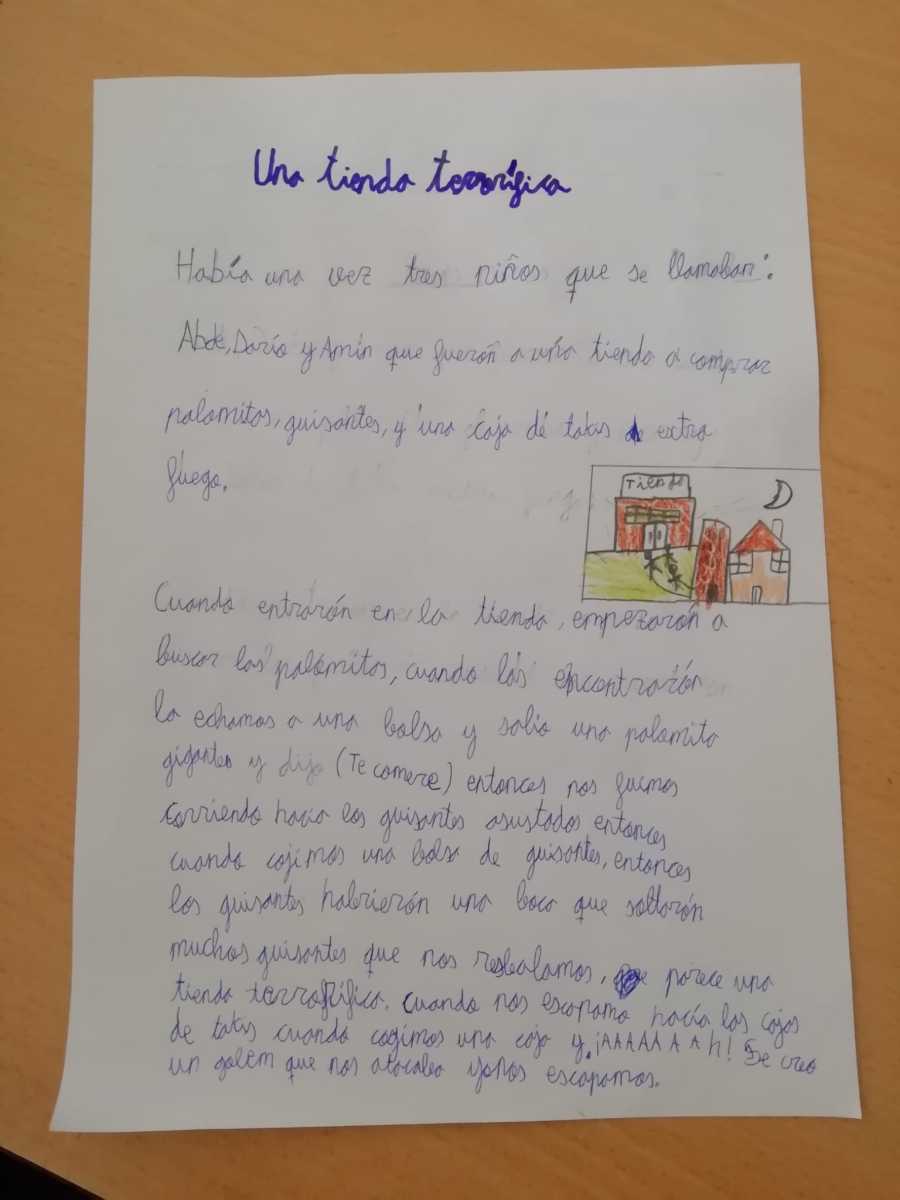 Una tienda terrorífica
Había una vez tres niños que se llamaban:
Abde, Darío y Amín que fuerón a una tienda a comprar
palomitas, guisantes, y una caja de takis extra
fuego.
Tienda
Cuando entrarón en la tienda, empezarón a
buscar las palomitas, cuando las encontrarón
la echamos a una bolsa y salio una palomita
gigante y dijo (Te comere) entonces nos fuimos
corriendo hacia los guisantes asustados entonces
cuando cojimos una bolsa de guisantes, entonces
los guisantes habrierón una boca que soltarón
muchos guisantes que nos resbalamos, parece una
tienda terrorifica. Cuando nos escapamo hacía las cajas
de takis cuando cogimos una caja y ¡AAAAAAh! Se creo
un golem que nos atacaba y nos escapamos.